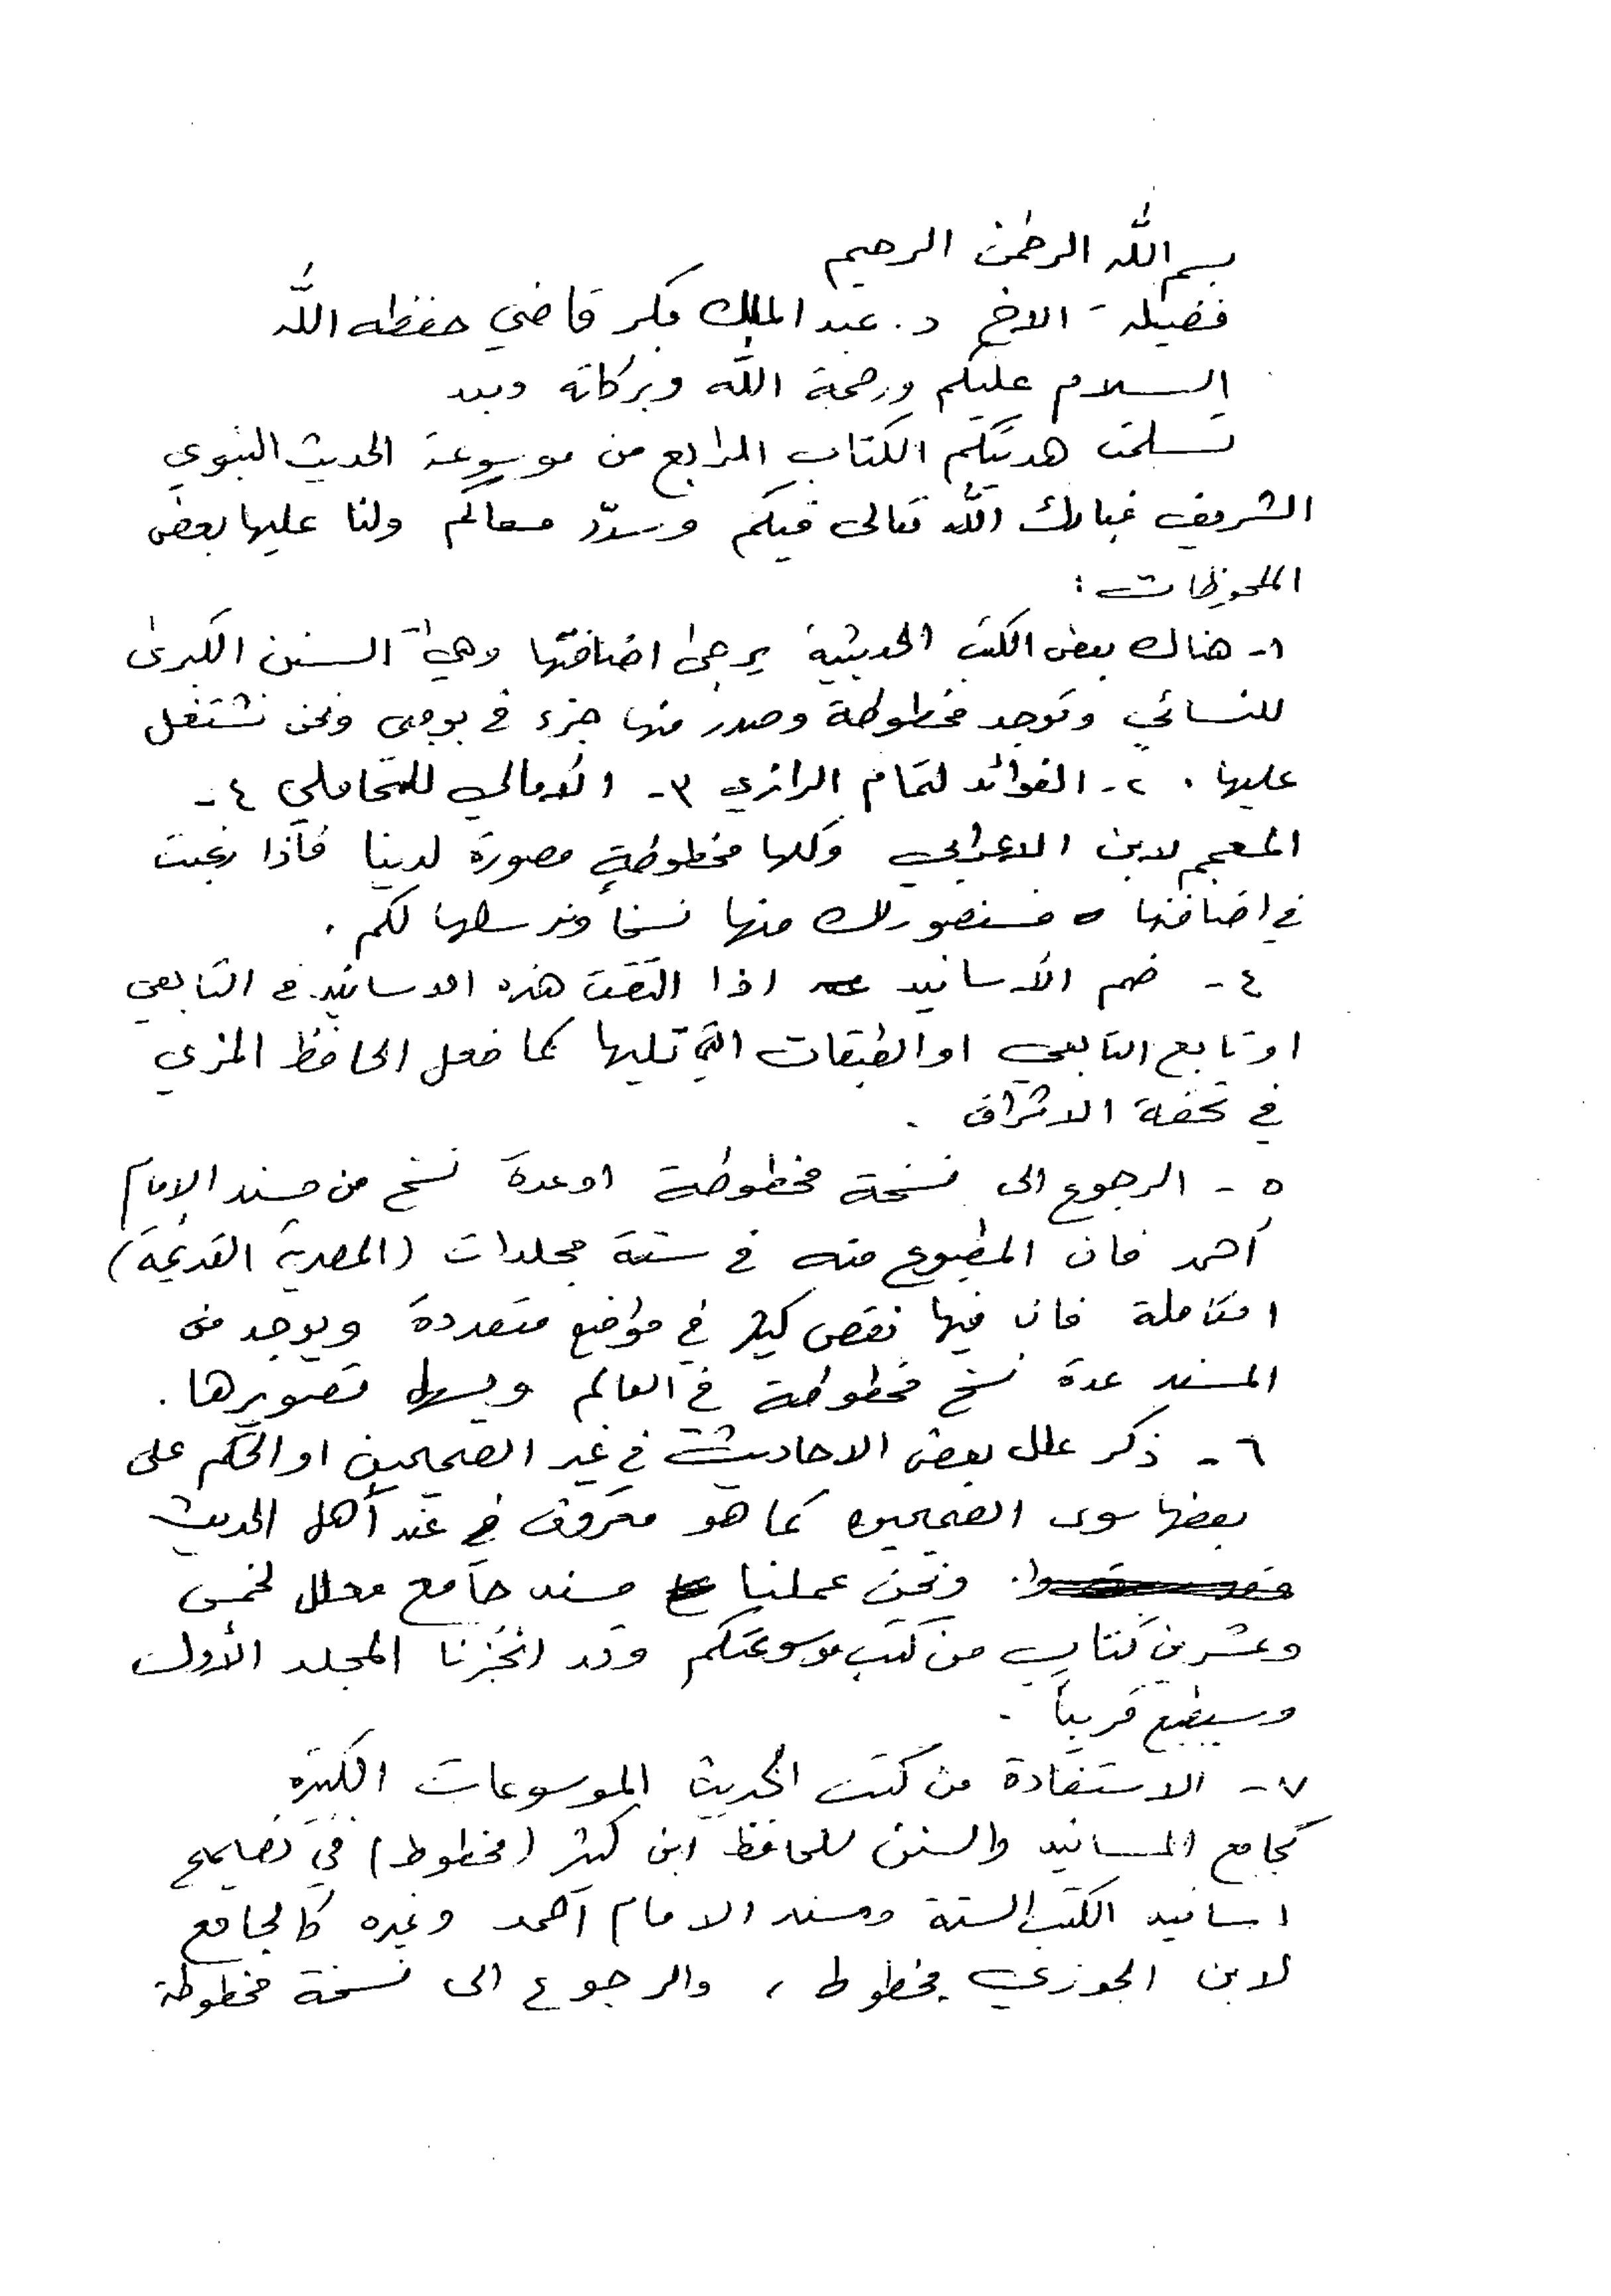 بسم الله الرحمن الرحيم
فضيلة الاخ د. عبد الملك بكر قاضي حفظه الله
السلام عليكم ورحمة الله وبركاته وبعد
تسلمت هديتكم الكتاب الرابع من موسوعة الحديث النبوي
الشريف فبارك الله تعالى فيكم وسدّد مسعاكم ولنا عليها بعض
الملحوظات :
١- هناك بعض الكتب الحديثية يرجى اضافتها وهي ١- السنن الكبرى
للنسائي وتوجد مخطوطة وصدر منها جزء في بومبي ونحن نشتغل
عليها . ٢- الفوائد لتمام الرازي ٣- الأمالي للمحاملي ٤-
المعجم لابن الاعرابي وكلها مخطوطة مصورة لدينا فاذا رغبت
في اضافتها فسنصور لك منها نسخاً ونرسلها لكم .
٤- ضم الأسانيد اذا التقت هذه الاسانيد في التابعي
او تابع التابعي او الطبقات التي تليها كما فعل الحافظ المزي
في تحفة الاشراف .
٥- الرجوع الى نسخة مخطوطة او عدة نسخ من مسند الإمام
أحمد فان المطبوع منه في ستة مجلدات (المصرية القديمة)
فان فيها نقص كثير في مواضع متعددة ويوجد من
المسند عدة نسخ مخطوطة في العالم ويسهل تصويرها .
٦- ذكر علل بعض الاحاديث في غير الصحيحين او الحكم على
بعضها سوى الصحيحين كما هو معروف عند أهل الحديث
ونحن عملنا مسند جامع معلل لخمس
وعشرين كتاب من كتب موسوعتكم وقد انجزنا المجلد الأول
وسيطبع قريباً .
٧- الاستفادة من كتب الحديث الموسوعات الكبيرة
كجامع المسانيد والسنن للحافظ ابن كثير (مخطوط) في
اسانيد الكتب الستة ومسند الامام أحمد وغيره كالجامع
لابن الجوزي مخطوط ، والرجوع الى نسخة مخطوطة